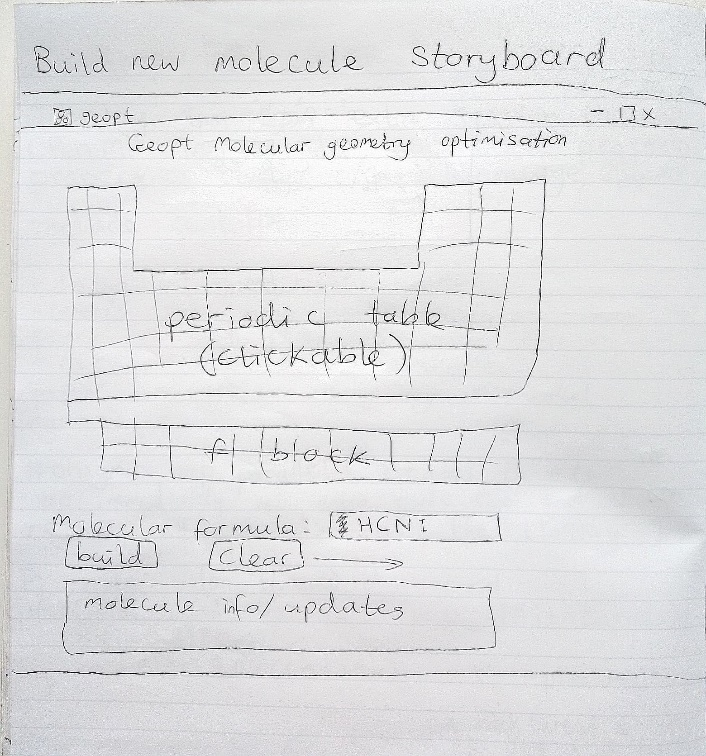 Build new molecule Storyboard
geopt - □ x
Geopt Molecular geometry optimisation
periodic table
(clickable)
f block
Molecular formula: HCNI
build Clear
molecule info/updates